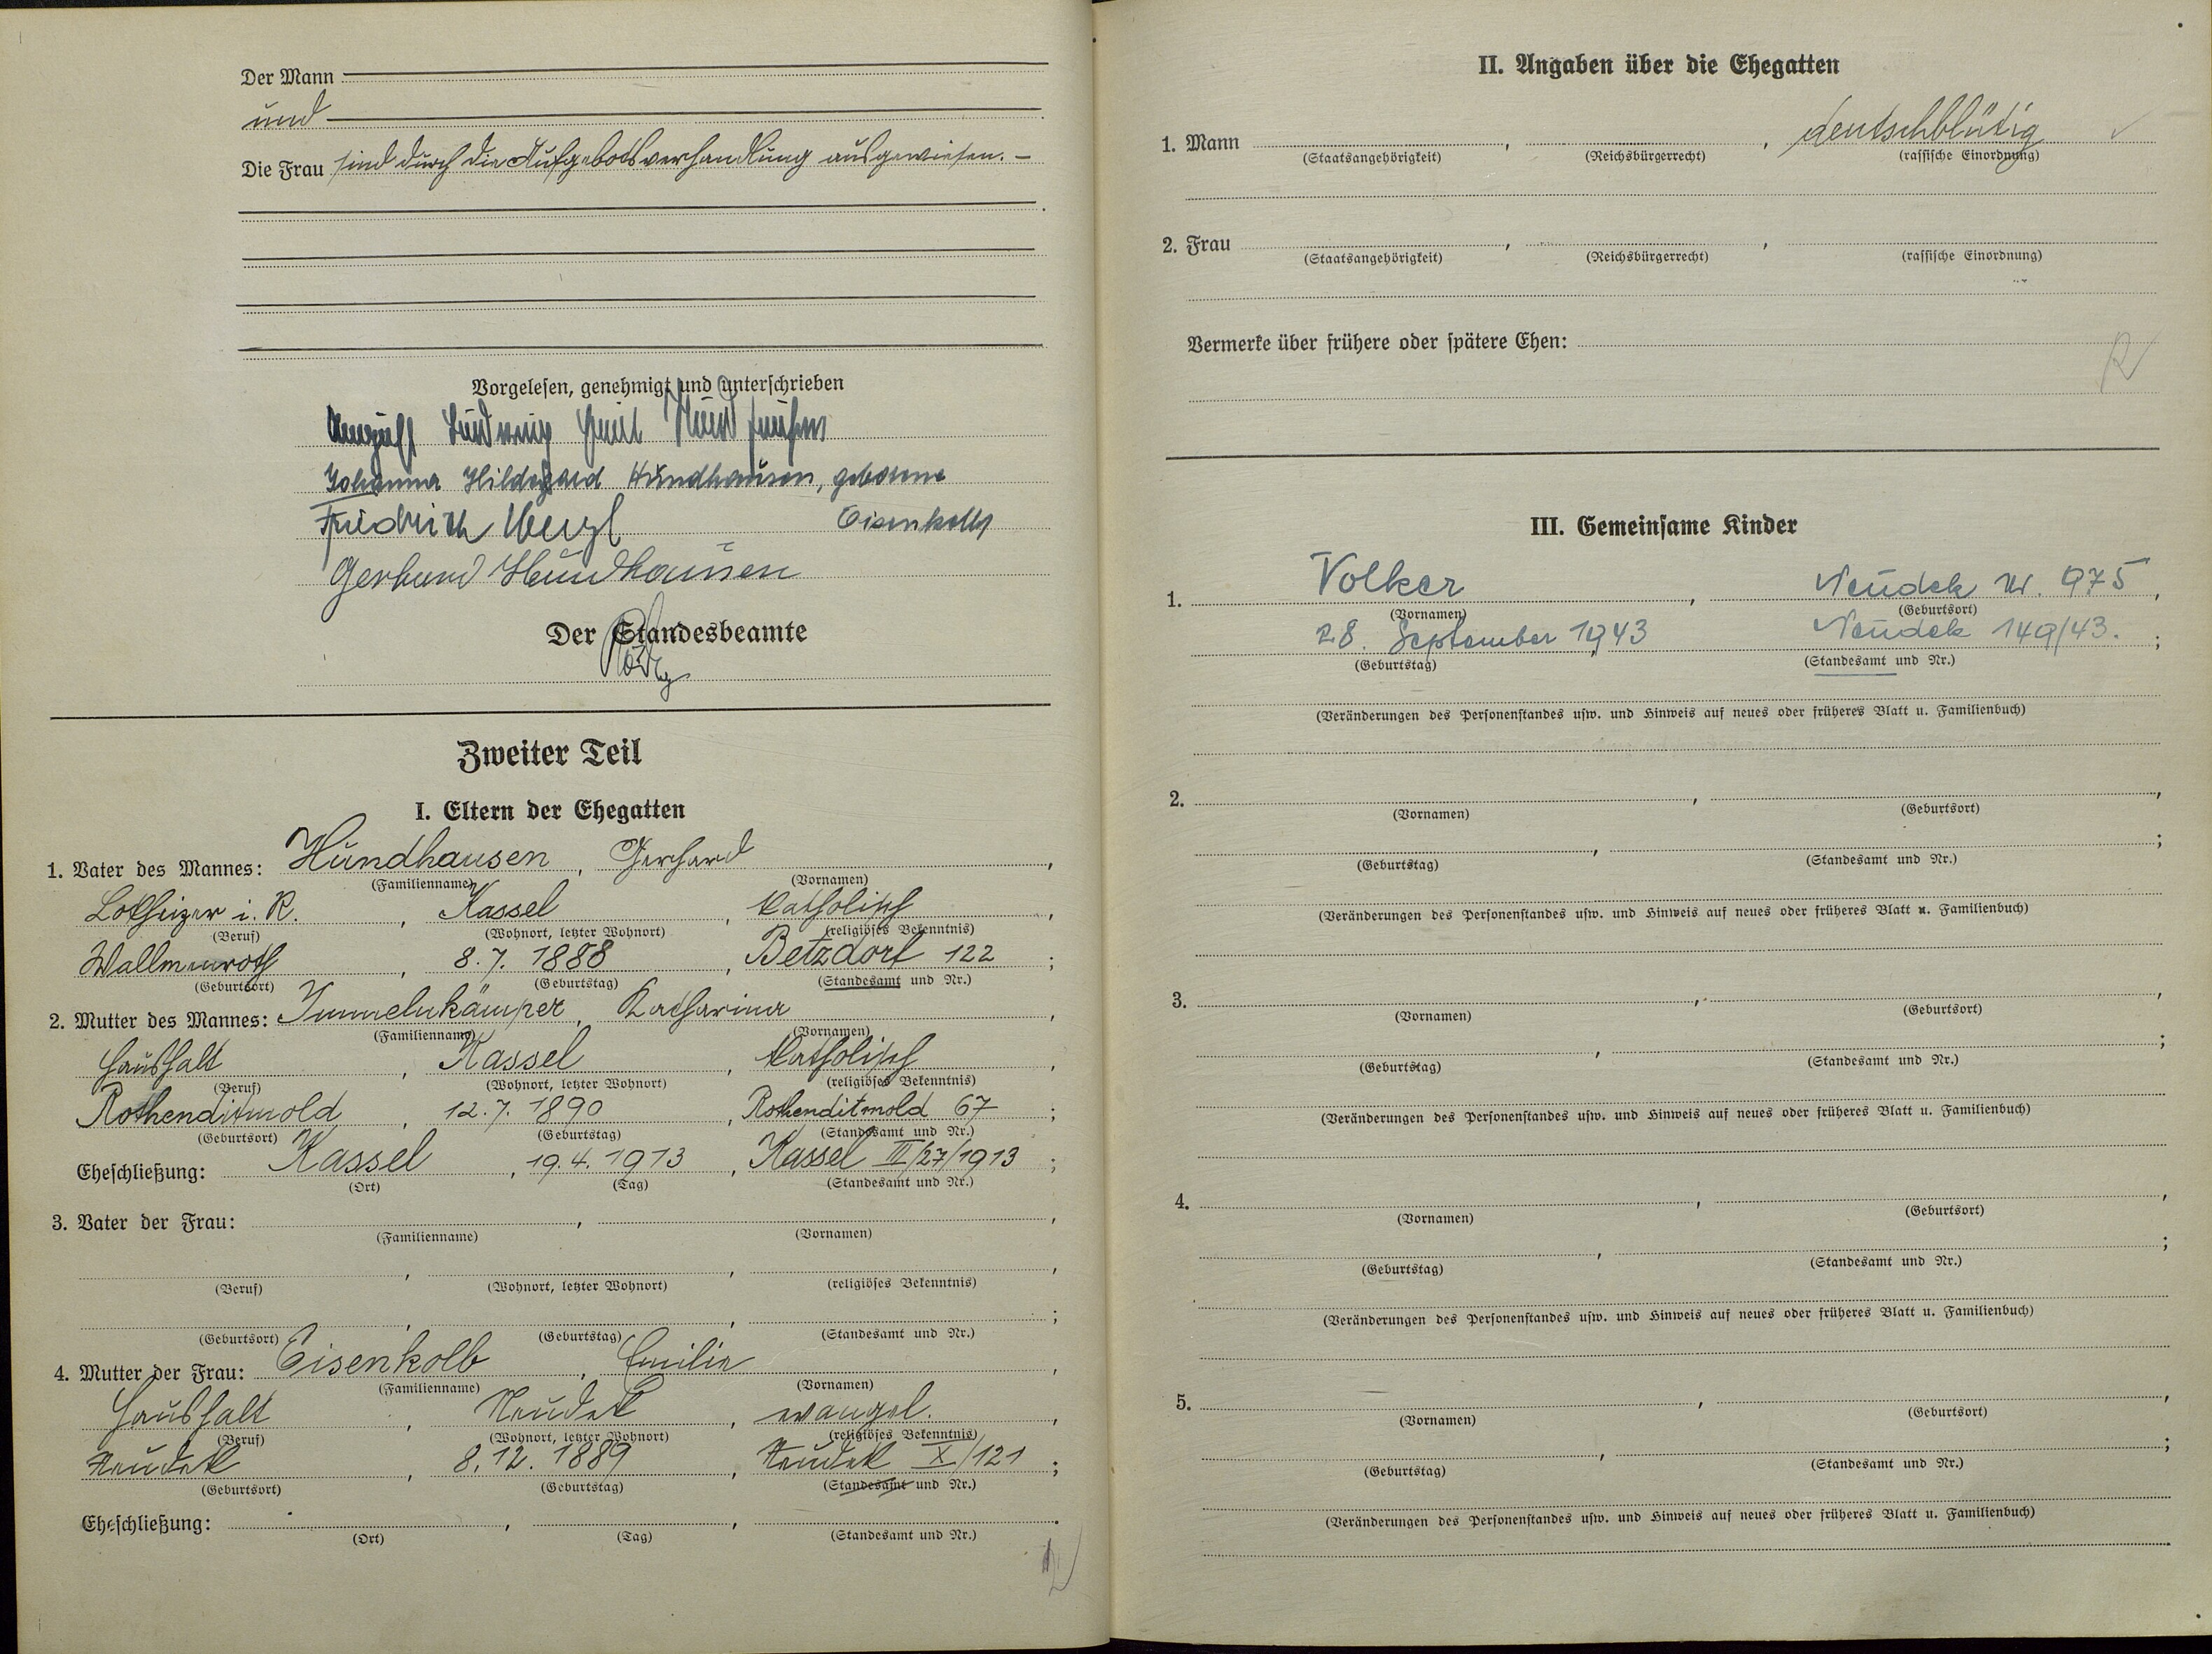 Der Mann
und
Die Frau sind durch die Aufgebotsverhandlung ausgewiesen. –
Vorgelesen, genehmigt und unterschrieben
August Ludwig Hundhausen
Johanna Hildegard Hundhausen, geborene
Friedrich Eisenkolb
Gerhard Hundhausen
Der Standesbeamte
Zweiter Teil
I. Eltern der Ehegatten
1. Vater des Mannes: Hundhausen, Gerhard,
(Familienname) (Vornamen)
Lokheizer i. R., Kassel, katholisch,
(Beruf) (Wohnort, letzter Wohnort) (religiöses Bekenntnis)
Wallmenroth, 8.7.1888, Betzdorf 122;
(Geburtsort) (Geburtstag) (Standesamt und Nr.)
2. Mutter des Mannes: Immelnkämper, Katharina,
(Familienname) (Vornamen)
Haushalt, Kassel, katholisch,
(Beruf) (Wohnort, letzter Wohnort) (religiöses Bekenntnis)
Rothenditmold, 12.7.1890, Rothenditmold 67;
(Geburtsort) (Geburtstag) (Standesamt und Nr.)
Eheschließung: Kassel, 19.4.1913, Kassel III/27/1913;
(Ort) (Tag) (Standesamt und Nr.)
3. Vater der Frau: , ,
(Familienname) (Vornamen)
(Beruf) (Wohnort, letzter Wohnort) (religiöses Bekenntnis)
(Geburtsort) (Geburtstag) (Standesamt und Nr.)
4. Mutter der Frau: Eisenkolb, Emilie,
(Familienname) (Vornamen)
Haushalt, Neudek, evangel.,
(Beruf) (Wohnort, letzter Wohnort) (religiöses Bekenntnis)
Neudek, 8.12.1889, Neudek X/121;
(Geburtsort) (Geburtstag) (Standesamt und Nr.)
Eheschließung: , , .
(Ort) (Tag) (Standesamt und Nr.)
II. Angaben über die Ehegatten
1. Mann , , deutschblütig
(Staatsangehörigkeit) (Reichsbürgerrecht) (rassische Einordnung)
2. Frau , ,
(Staatsangehörigkeit) (Reichsbürgerrecht) (rassische Einordnung)
Vermerke über frühere oder spätere Ehen:
III. Gemeinsame Kinder
1. Volker, Neudek Nr. 975,
(Vornamen) (Geburtsort)
28. September 1943, Neudek 149/43.;
(Geburtstag) (Standesamt und Nr.)
(Veränderungen des Personenstandes usw. und Hinweis auf neues oder früheres Blatt u. Familienbuch)
2. , ,
(Vornamen) (Geburtsort)
(Geburtstag) (Standesamt und Nr.)
(Veränderungen des Personenstandes usw. und Hinweis auf neues oder früheres Blatt u. Familienbuch)
3. , ,
(Vornamen) (Geburtsort)
(Geburtstag) (Standesamt und Nr.)
(Veränderungen des Personenstandes usw. und Hinweis auf neues oder früheres Blatt u. Familienbuch)
4. , ,
(Vornamen) (Geburtsort)
(Geburtstag) (Standesamt und Nr.)
(Veränderungen des Personenstandes usw. und Hinweis auf neues oder früheres Blatt u. Familienbuch)
5. , ,
(Vornamen) (Geburtsort)
(Geburtstag) (Standesamt und Nr.)
(Veränderungen des Personenstandes usw. und Hinweis auf neues oder früheres Blatt u. Familienbuch)